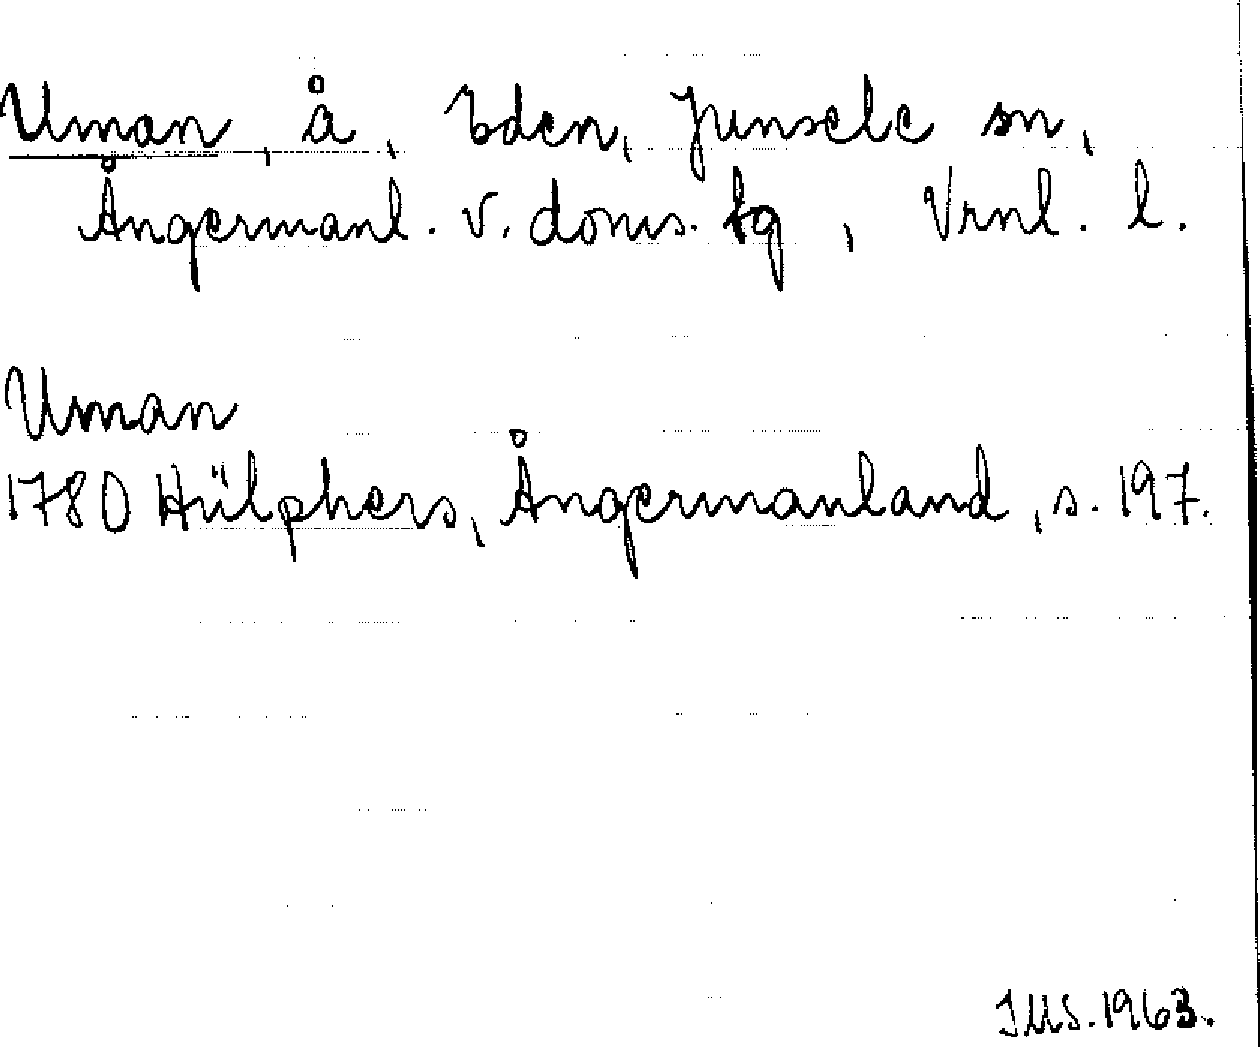 Uman, å, Eden, Junsele sn,
Ångermanl. v. doms. tg, Vrnl. l.
Uman
1780 Hülphers, Ångermanland, s. 197.
IMS. 1963.